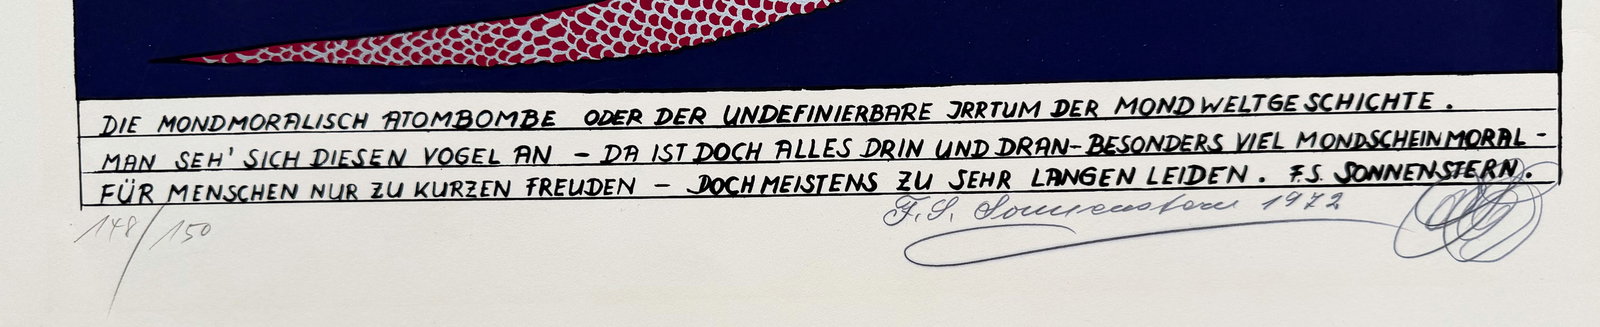 DIE MONDMORALISCH ATOMBOMBE ODER DER UNDEFINIERBARE IRRTUM DER MONDWELTGESCHICHTE.
MAN SEH' SICH DIESEN VOGEL AN – DA IST DOCH ALLES DRIN UND DRAN – BESONDERS VIEL MONDSCHEINMORAL –
FÜR MENSCHEN NUR ZU KURZEN FREUDEN – DOCH MEISTENS ZU SEHR LANGEN LEIDEN. F.S. SONNENSTERN.
148/150
F. S. Sonnenstern 1972